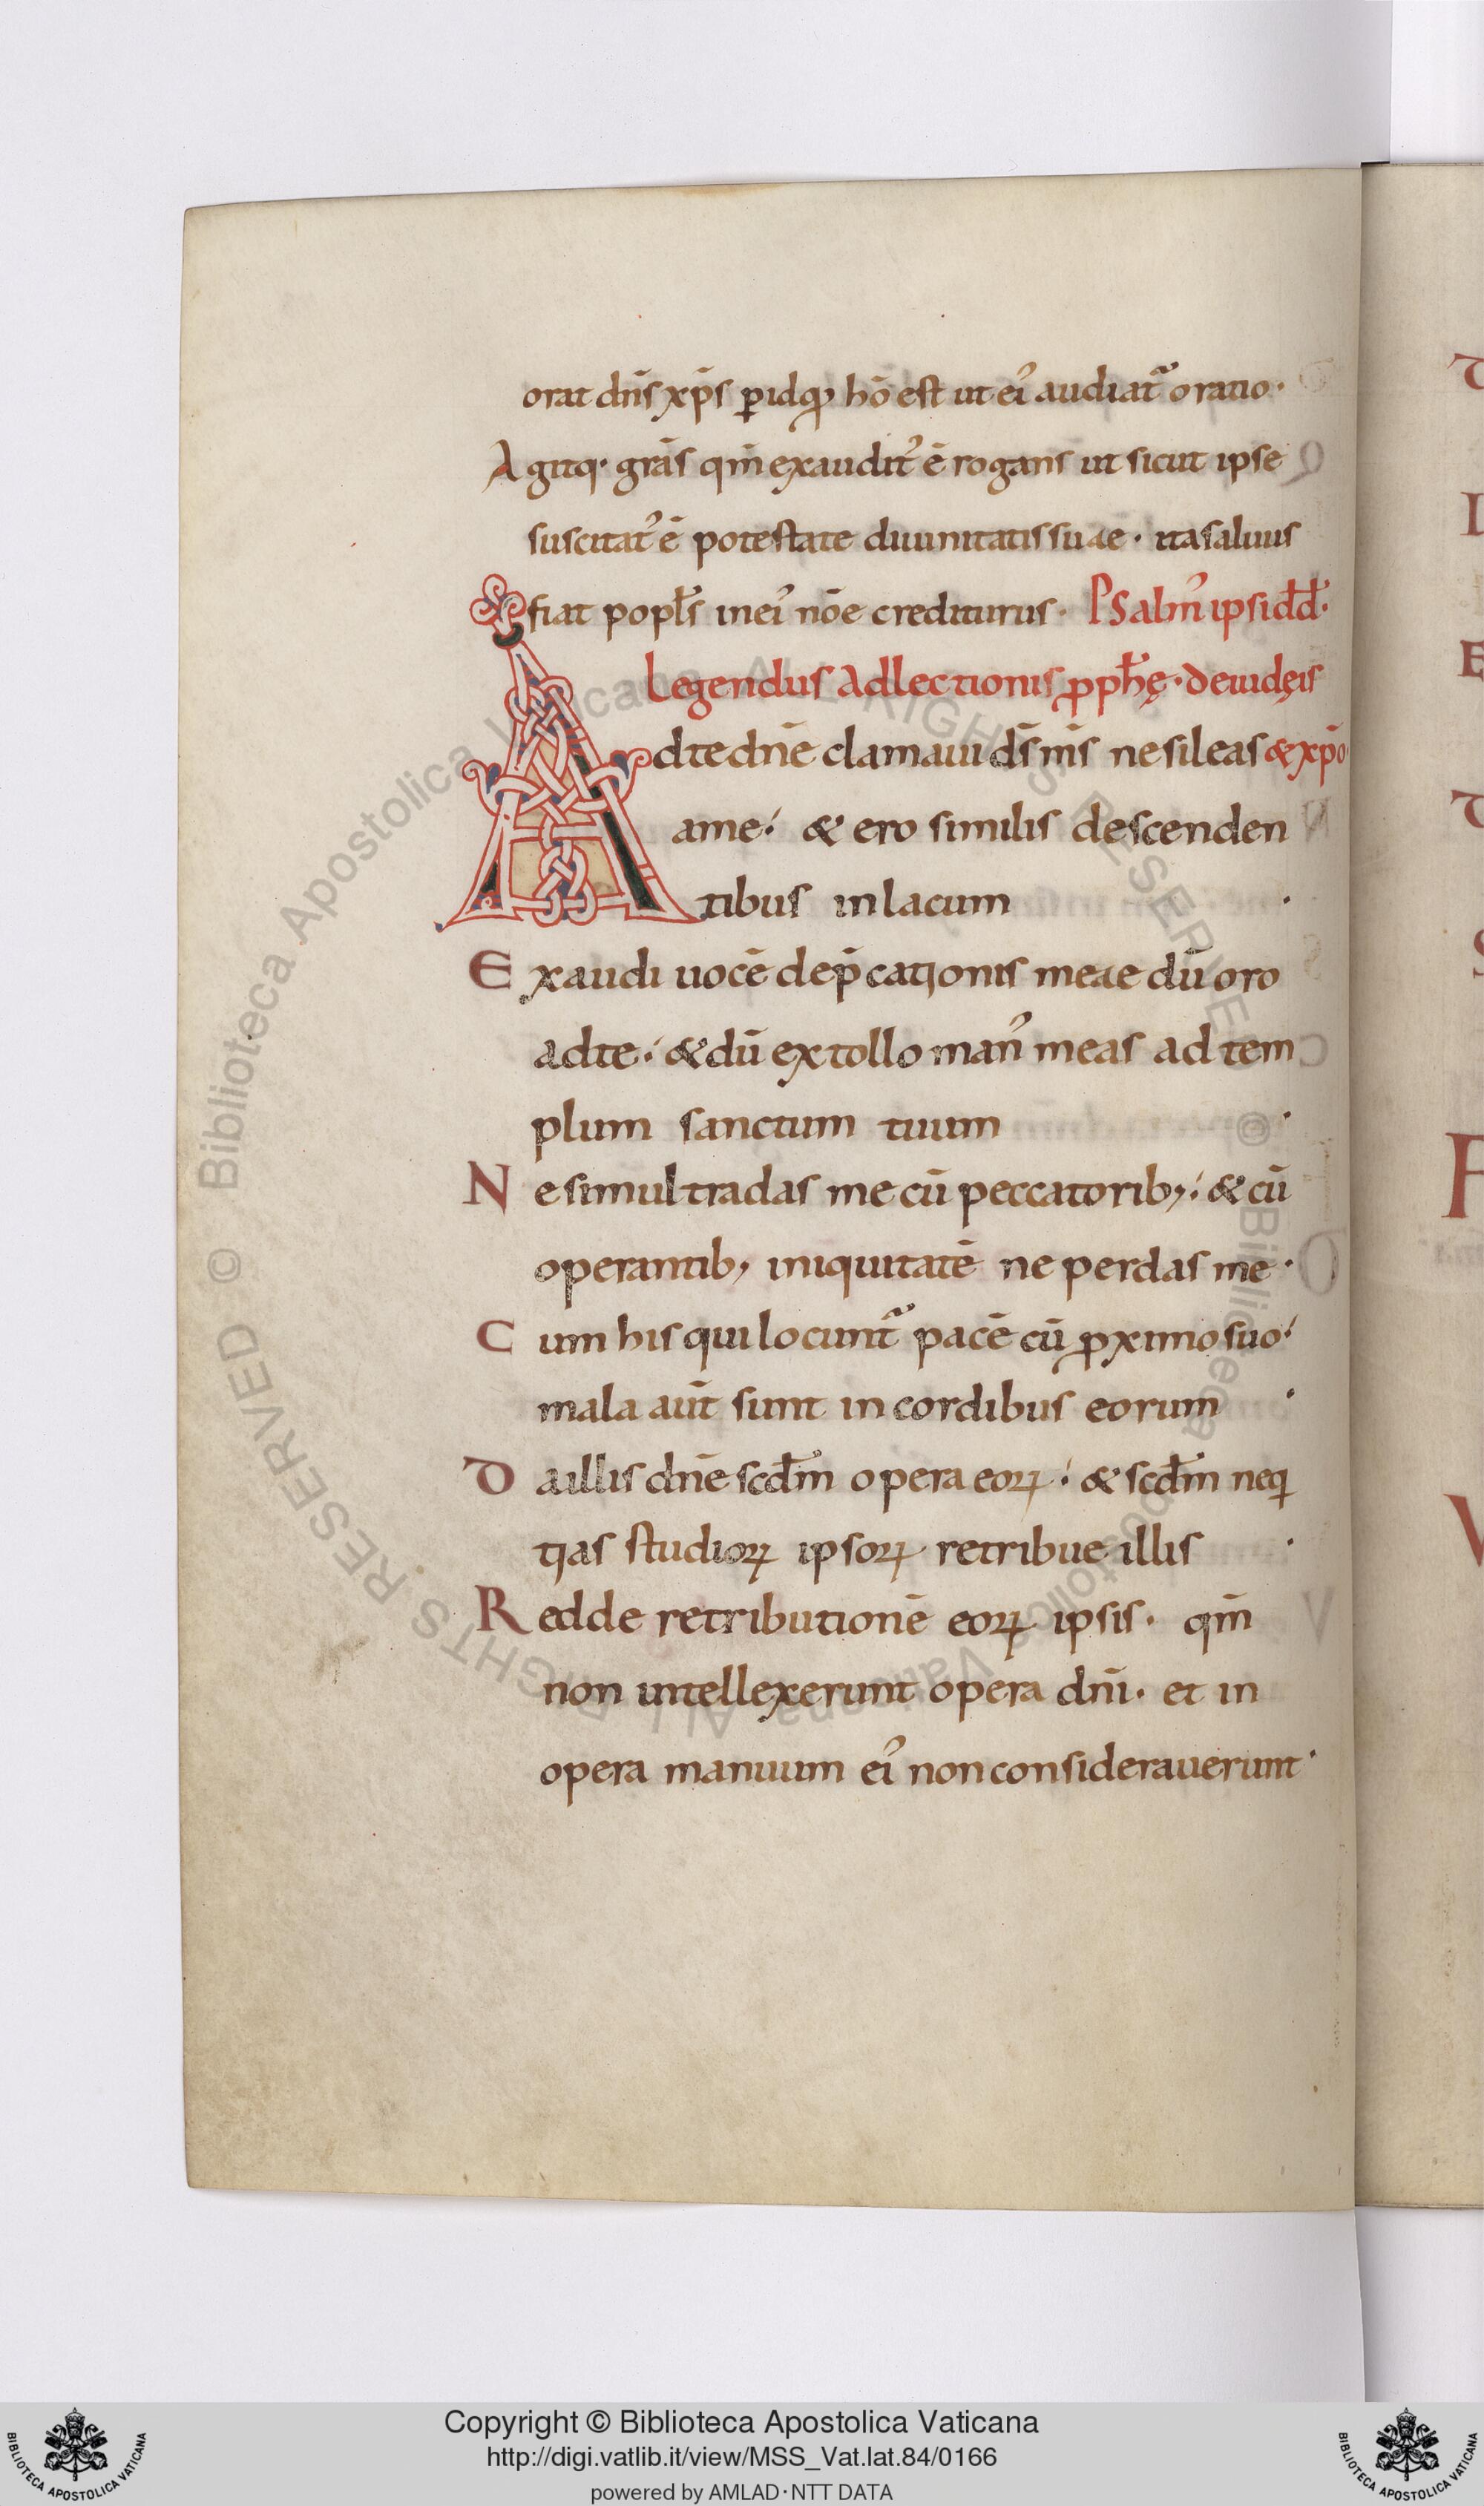 orat dn̄s xp̄s ꝑ id qđ hō est ut ei᾿ audiat᷑ oratio·
Agitq· grās qm̄ exaudit᾿ ē rogans ut sicut ipse
suscitat᾿ ē potestate diuinitatis suae· ita saluus
fiat popl̄s in ei᾿ nōe crediturus· Psalm᾿ ipsi dd̄·
Legendus ad lectionis ꝓph̄ę· de iudęis
Ad te dn̄e clamaui ds̄ ms̄ ne sileas & xp̄o·
a me: & ero similis descenden
tibus in lacum ·
Exaudi uocē dep̄cationis meae dū oro
ad te: & dū extollo man᾿ meas ad tem
plum sanctum tuum ·
Ne simul tradas me cū peccatorib;: & cū
operantib; iniquitatē ne perdas me·
Cum his qui locunt᷑ pacē cū ꝓximo suo:
mala aut̄ sunt in cordibus eorum ·
Da illis dn̄e scd̄m opera eoꝝ: & scd̄m neq
tias studioꝝ ipsoꝝ retribue illis ·
Redde retributionē eoꝝ ipsis· qm̄
non intellexerunt opera dn̄i· et in
opera manuum ei᾿ non considerauerunt·
© Biblioteca Apostolica Vaticana ALL RIGHTS RESERVED
© Biblioteca Apostolica Vaticana ALL RIGHTS RESERVED
Copyright © Biblioteca Apostolica Vaticana
http://digi.vatlib.it/view/MSS_Vat.lat.84/0166
powered by AMLAD·NTT DATA
BIBLIOTECA APOSTOLICA VATICANA
BIBLIOTECA APOSTOLICA VATICANA